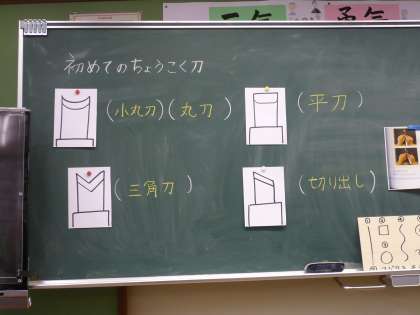 初めてのちょうこく刀
(小丸刀)(丸刀)
(平刀)
(三角刀)
(切り出し)